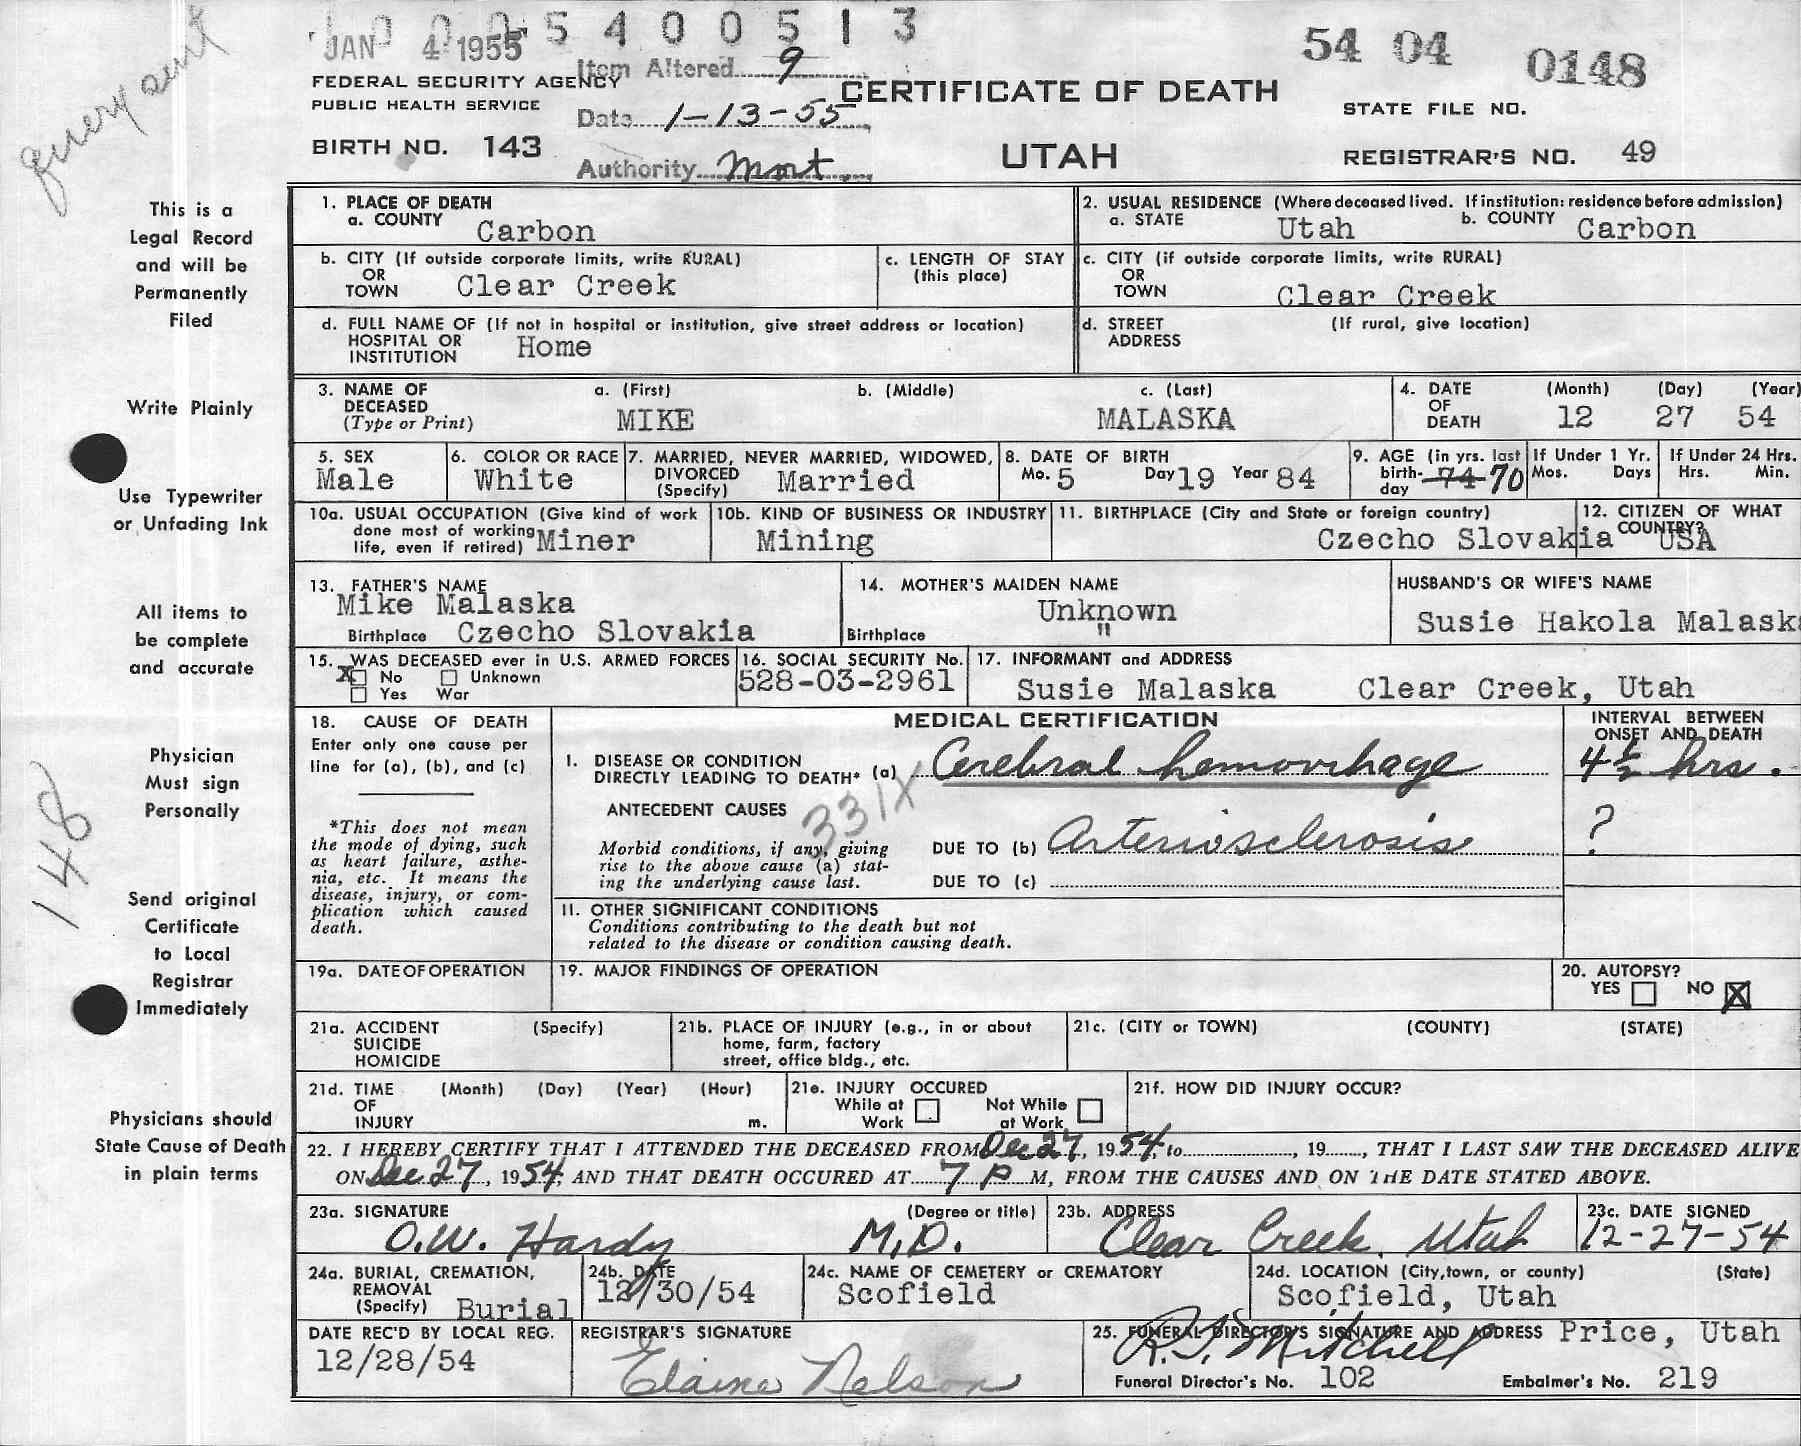 query sent
1 0 0 0 5 4 0 0 5 1 3
JAN 4 1955
54 04 0148
Item Altered 9
FEDERAL SECURITY AGENCY
PUBLIC HEALTH SERVICE
Date 1-13-55
CERTIFICATE OF DEATH
STATE FILE NO.
BIRTH NO. 143
Authority Mort.
UTAH
REGISTRAR'S NO. 49
This is a
Legal Record
and will be
Permanently
Filed
Write Plainly
Use Typewriter
or Unfading Ink
All items to
be complete
and accurate
Physician
Must sign
Personally
148
Send original
Certificate
to Local
Registrar
Immediately
Physicians should
State Cause of Death
in plain terms
1. PLACE OF DEATH
a. COUNTY Carbon
2. USUAL RESIDENCE (Where deceased lived. If institution: residence before admission)
a. STATE Utah b. COUNTY Carbon
b. CITY (If outside corporate limits, write RURAL)
OR
TOWN Clear Creek
c. LENGTH OF STAY
(this place)
c. CITY (if outside corporate limits, write RURAL)
OR
TOWN Clear Creek
d. FULL NAME OF (If not in hospital or institution, give street address or location)
HOSPITAL OR
INSTITUTION Home
d. STREET (If rural, give location)
ADDRESS
3. NAME OF DECEASED (Type or Print)
a. (First) b. (Middle) c. (Last)
MIKE MALASKA
4. DATE OF DEATH (Month) (Day) (Year)
12 27 54
5. SEX
Male
6. COLOR OR RACE
White
7. MARRIED, NEVER MARRIED, WIDOWED,
DIVORCED
(Specify) Married
8. DATE OF BIRTH
Mo. 5 Day 19 Year 84
9. AGE (in yrs. last
birth-
day 74 70
If Under 1 Yr.
Mos. Days
If Under 24 Hrs.
Hrs. Min.
10a. USUAL OCCUPATION (Give kind of work
done most of working
life, even if retired) Miner
10b. KIND OF BUSINESS OR INDUSTRY
Mining
11. BIRTHPLACE (City and State or foreign country)
Czecho Slovakia
12. CITIZEN OF WHAT
COUNTRY?
USA
13. FATHER'S NAME
Mike Malaska
Birthplace Czecho Slovakia
14. MOTHER'S MAIDEN NAME
Unknown
Birthplace "
HUSBAND'S OR WIFE'S NAME
Susie Hakola Malaska
15. WAS DECEASED ever in U.S. ARMED FORCES
X No Unknown
Yes War
16. SOCIAL SECURITY No.
528-03-2961
17. INFORMANT and ADDRESS
Susie Malaska Clear Creek, Utah
18. CAUSE OF DEATH
Enter only one cause per
line for (a), (b), and (c)
*This does not mean
the mode of dying, such
as heart failure, asthe-
nia, etc. It means the
disease, injury, or com-
plication which caused
death.
MEDICAL CERTIFICATION
INTERVAL BETWEEN
ONSET AND DEATH
I. DISEASE OR CONDITION
DIRECTLY LEADING TO DEATH* (a) Cerebral hemorrhage 4½ hrs.
331X
ANTECEDENT CAUSES
Morbid conditions, if any, giving
rise to the above cause (a) stat-
ing the underlying cause last.
DUE TO (b) Arteriosclerosis ?
DUE TO (c)
II. OTHER SIGNIFICANT CONDITIONS
Conditions contributing to the death but not
related to the disease or condition causing death.
19a. DATE OF OPERATION
19. MAJOR FINDINGS OF OPERATION
20. AUTOPSY?
YES NO X
21a. ACCIDENT (Specify)
SUICIDE
HOMICIDE
21b. PLACE OF INJURY (e.g., in or about
home, farm, factory
street, office bldg., etc.
21c. (CITY or TOWN) (COUNTY) (STATE)
21d. TIME (Month) (Day) (Year) (Hour)
OF
INJURY m.
21e. INJURY OCCURED
While at Work Not While at Work
21f. HOW DID INJURY OCCUR?
22. I HEREBY CERTIFY THAT I ATTENDED THE DECEASED FROM Dec 27, 1954, to , 19 , THAT I LAST SAW THE DECEASED ALIVE
ON Dec 27, 1954, AND THAT DEATH OCCURED AT 7 P M, FROM THE CAUSES AND ON THE DATE STATED ABOVE.
23a. SIGNATURE (Degree or title)
O.W. Hardy M.D.
23b. ADDRESS
Clear Creek, Utah
23c. DATE SIGNED
12-27-54
24a. BURIAL, CREMATION,
REMOVAL
(Specify) Burial
24b. DATE
12/30/54
24c. NAME OF CEMETERY or CREMATORY
Scofield
24d. LOCATION (City, town, or county) (State)
Scofield, Utah
DATE REC'D BY LOCAL REG.
12/28/54
REGISTRAR'S SIGNATURE
Elaine Nelson
25. FUNERAL DIRECTOR'S SIGNATURE AND ADDRESS Price, Utah
R.T. Mitchell
Funeral Director's No. 102 Embalmer's No. 219